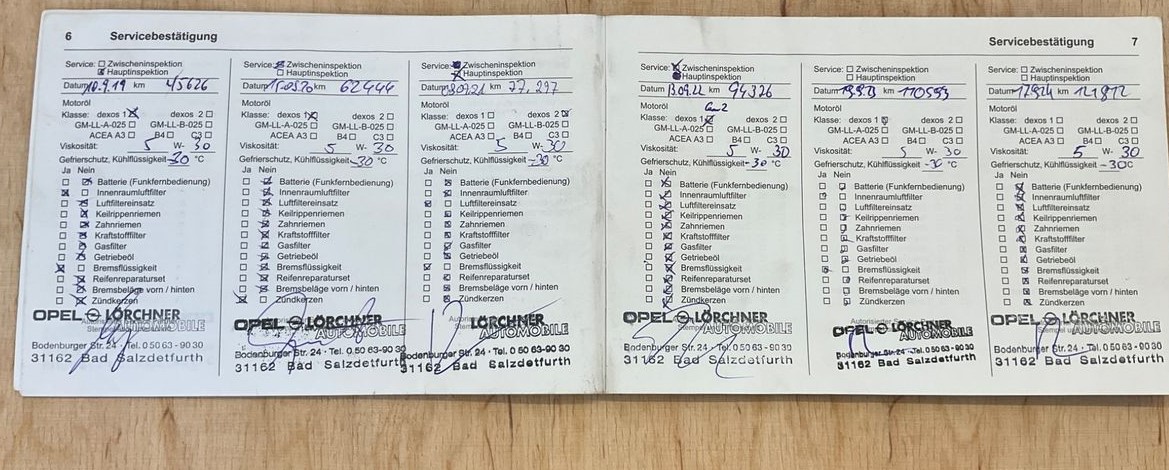 6 Servicebestätigung
Service: Zwischeninspektion
Hauptinspektion
Datum 10.9.19 km 45626
Motoröl
Klasse: dexos 1 dexos 2
GM-LL-A-025 GM-LL-B-025
ACEA A3 B4 C3
Viskosität: 5 W- 30
Gefrierschutz, Kühlflüssigkeit -30 °C
Ja Nein
Batterie (Funkfernbedienung)
Innenraumluftfilter
Luftfiltereinsatz
Keilrippenriemen
Zahnriemen
Kraftstofffilter
Gasfilter
Getriebeöl
Bremsflüssigkeit
Reifenreparaturset
Bremsbeläge vorn / hinten
Zündkerzen
OPEL LÖRCHNER
AUTOMOBILE
Bodenburger Str. 24 · Tel. 0 50 63 - 90 30
31162 Bad Salzdetfurth
Service: Zwischeninspektion
Hauptinspektion
Datum km 62444
Motoröl
Klasse: dexos 1 dexos 2
GM-LL-A-025 GM-LL-B-025
ACEA A3 B4 C3
Viskosität: 5 W- 30
Gefrierschutz, Kühlflüssigkeit -30 °C
Ja Nein
Batterie (Funkfernbedienung)
Innenraumluftfilter
Luftfiltereinsatz
Keilrippenriemen
Zahnriemen
Kraftstofffilter
Gasfilter
Getriebeöl
Bremsflüssigkeit
Reifenreparaturset
Bremsbeläge vorn / hinten
Zündkerzen
OPEL LÖRCHNER
AUTOMOBILE
Bodenburger Str. 24 · Tel. 0 50 63 - 90 30
31162 Bad Salzdetfurth
Service: Zwischeninspektion
Hauptinspektion
Datum km 77.297
Motoröl
Klasse: dexos 1 dexos 2
GM-LL-A-025 GM-LL-B-025
ACEA A3 B4 C3
Viskosität: 5 W- 30
Gefrierschutz, Kühlflüssigkeit -30 °C
Ja Nein
Batterie (Funkfernbedienung)
Innenraumluftfilter
Luftfiltereinsatz
Keilrippenriemen
Zahnriemen
Kraftstofffilter
Gasfilter
Getriebeöl
Bremsflüssigkeit
Reifenreparaturset
Bremsbeläge vorn / hinten
Zündkerzen
LÖRCHNER
AUTOMOBILE
Bodenburger Str. 24 · Tel. 0 50 63 - 90 30
31162 Bad Salzdetfurth
Servicebestätigung 7
Service: Zwischeninspektion
Hauptinspektion
Datum 13.09.22 km 94326
Motoröl
Klasse: dexos 1 dexos 2
GM-LL-A-025 GM-LL-B-025
ACEA A3 B4 C3
Viskosität: 5 W- 30
Gefrierschutz, Kühlflüssigkeit -30 °C
Ja Nein
Batterie (Funkfernbedienung)
Innenraumluftfilter
Luftfiltereinsatz
Keilrippenriemen
Zahnriemen
Kraftstofffilter
Gasfilter
Getriebeöl
Bremsflüssigkeit
Reifenreparaturset
Bremsbeläge vorn / hinten
Zündkerzen
OPEL LÖRCHNER
AUTOMOBILE
Bodenburger Str. 24 · Tel. 0 50 63 - 90 30
31162 Bad Salzdetfurth
Service: Zwischeninspektion
Hauptinspektion
Datum km 110593
Motoröl
Klasse: dexos 1 dexos 2
GM-LL-A-025 GM-LL-B-025
ACEA A3 B4 C3
Viskosität: 5 W- 30
Gefrierschutz, Kühlflüssigkeit -30 °C
Ja Nein
Batterie (Funkfernbedienung)
Innenraumluftfilter
Luftfiltereinsatz
Keilrippenriemen
Zahnriemen
Kraftstofffilter
Gasfilter
Getriebeöl
Bremsflüssigkeit
Reifenreparaturset
Bremsbeläge vorn / hinten
Zündkerzen
OPEL LÖRCHNER
AUTOMOBILE
Bodenburger Str. 24 · Tel. 0 50 63 - 90 30
31162 Bad Salzdetfurth
Service: Zwischeninspektion
Hauptinspektion
Datum 17.9.24 km 121812
Motoröl
Klasse: dexos 1 dexos 2
GM-LL-A-025 GM-LL-B-025
ACEA A3 B4 C3
Viskosität: 5 W- 30
Gefrierschutz, Kühlflüssigkeit -30 °C
Ja Nein
Batterie (Funkfernbedienung)
Innenraumluftfilter
Luftfiltereinsatz
Keilrippenriemen
Zahnriemen
Kraftstofffilter
Gasfilter
Getriebeöl
Bremsflüssigkeit
Reifenreparaturset
Bremsbeläge vorn / hinten
Zündkerzen
OPEL LÖRCHNER
AUTOMOBILE
Bodenburger Str. 24 · Tel. 0 50 63 - 90 30
31162 Bad Salzdetfurth